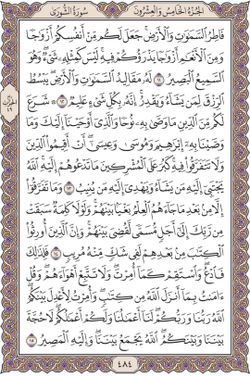 الجزء الخامس والعشرون
سورة الشورى
فَاطِرُ السَّمَوَاتِ وَالْأَرْضِ جَعَلَ لَكُمْ مِنْ أَنْفُسِكُمْ أَزْوَاجًا
وَمِنَ الْأَنْعَامِ أَزْوَاجًا يَذْرَؤُكُمْ فِيهِ لَيْسَ كَمِثْلِهِ شَيْءٌ وَهُوَ
السَّمِيعُ الْبَصِيرُ ﴿١١﴾ لَهُ مَقَالِيدُ السَّمَوَاتِ وَالْأَرْضِ يَبْسُطُ
الرِّزْقَ لِمَنْ يَشَاءُ وَيَقْدِرُ إِنَّهُ بِكُلِّ شَيْءٍ عَلِيمٌ ﴿١٢﴾ شَرَعَ
لَكُمْ مِنَ الدِّينِ مَا وَصَّى بِهِ نُوحًا وَالَّذِي أَوْحَيْنَا إِلَيْكَ وَمَا
وَصَّيْنَا بِهِ إِبْرَهِيمَ وَمُوسَى وَعِيسَى أَنْ أَقِيمُوا الدِّينَ
وَلَا تَتَفَرَّقُوا فِيهِ كَبُرَ عَلَى الْمُشْرِكِينَ مَا تَدْعُوهُمْ إِلَيْهِ اللَّهُ
يَجْتَبِي إِلَيْهِ مَنْ يَشَاءُ وَيَهْدِي إِلَيْهِ مَنْ يُنِيبُ ﴿١٣﴾ وَمَا تَفَرَّقُوا
إِلَّا مِنْ بَعْدِ مَا جَاءَهُمُ الْعِلْمُ بَغْيًا بَيْنَهُمْ وَلَوْلَا كَلِمَةٌ سَبَقَتْ
مِنْ رَبِّكَ إِلَى أَجَلٍ مُسَمًّى لَقُضِيَ بَيْنَهُمْ وَإِنَّ الَّذِينَ أُورِثُوا
الْكِتَبَ مِنْ بَعْدِهِمْ لَفِي شَكٍّ مِنْهُ مُرِيبٍ ﴿١٤﴾ فَلِذَلِكَ
فَادْعُ وَاسْتَقِمْ كَمَا أُمِرْتَ وَلَا تَتَّبِعْ أَهْوَاءَهُمْ وَقُلْ
ءَامَنْتُ بِمَا أَنْزَلَ اللَّهُ مِنْ كِتَبٍ وَأُمِرْتُ لِأَعْدِلَ بَيْنَكُمُ
اللَّهُ رَبُّنَا وَرَبُّكُمْ لَنَا أَعْمَلُنَا وَلَكُمْ أَعْمَلُكُمْ لَا حُجَّةَ
بَيْنَنَا وَبَيْنَكُمُ اللَّهُ يَجْمَعُ بَيْنَنَا وَإِلَيْهِ الْمَصِيرُ ﴿١٥﴾
٤٨٤